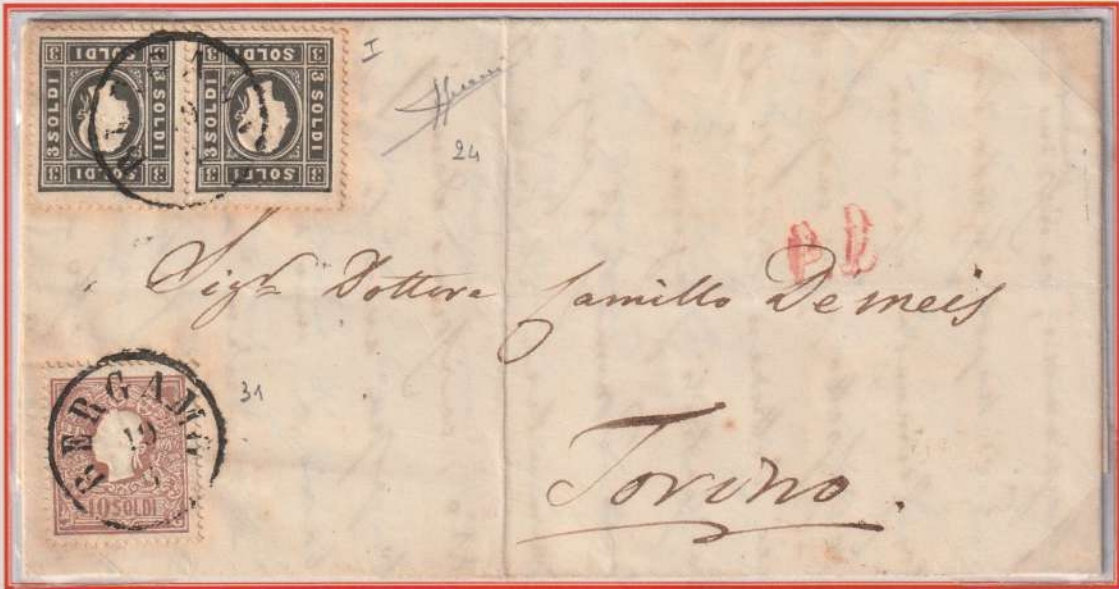 SOLDI SOLDI
3 SOLDI 3 SOLDI 3 SOLDI 3 SOLDI
SOLDI SOLDI
I
24
P D
Sigr Dottore Camillo De meis
BERGAMO
19
10 SOLDI
31
Torino.